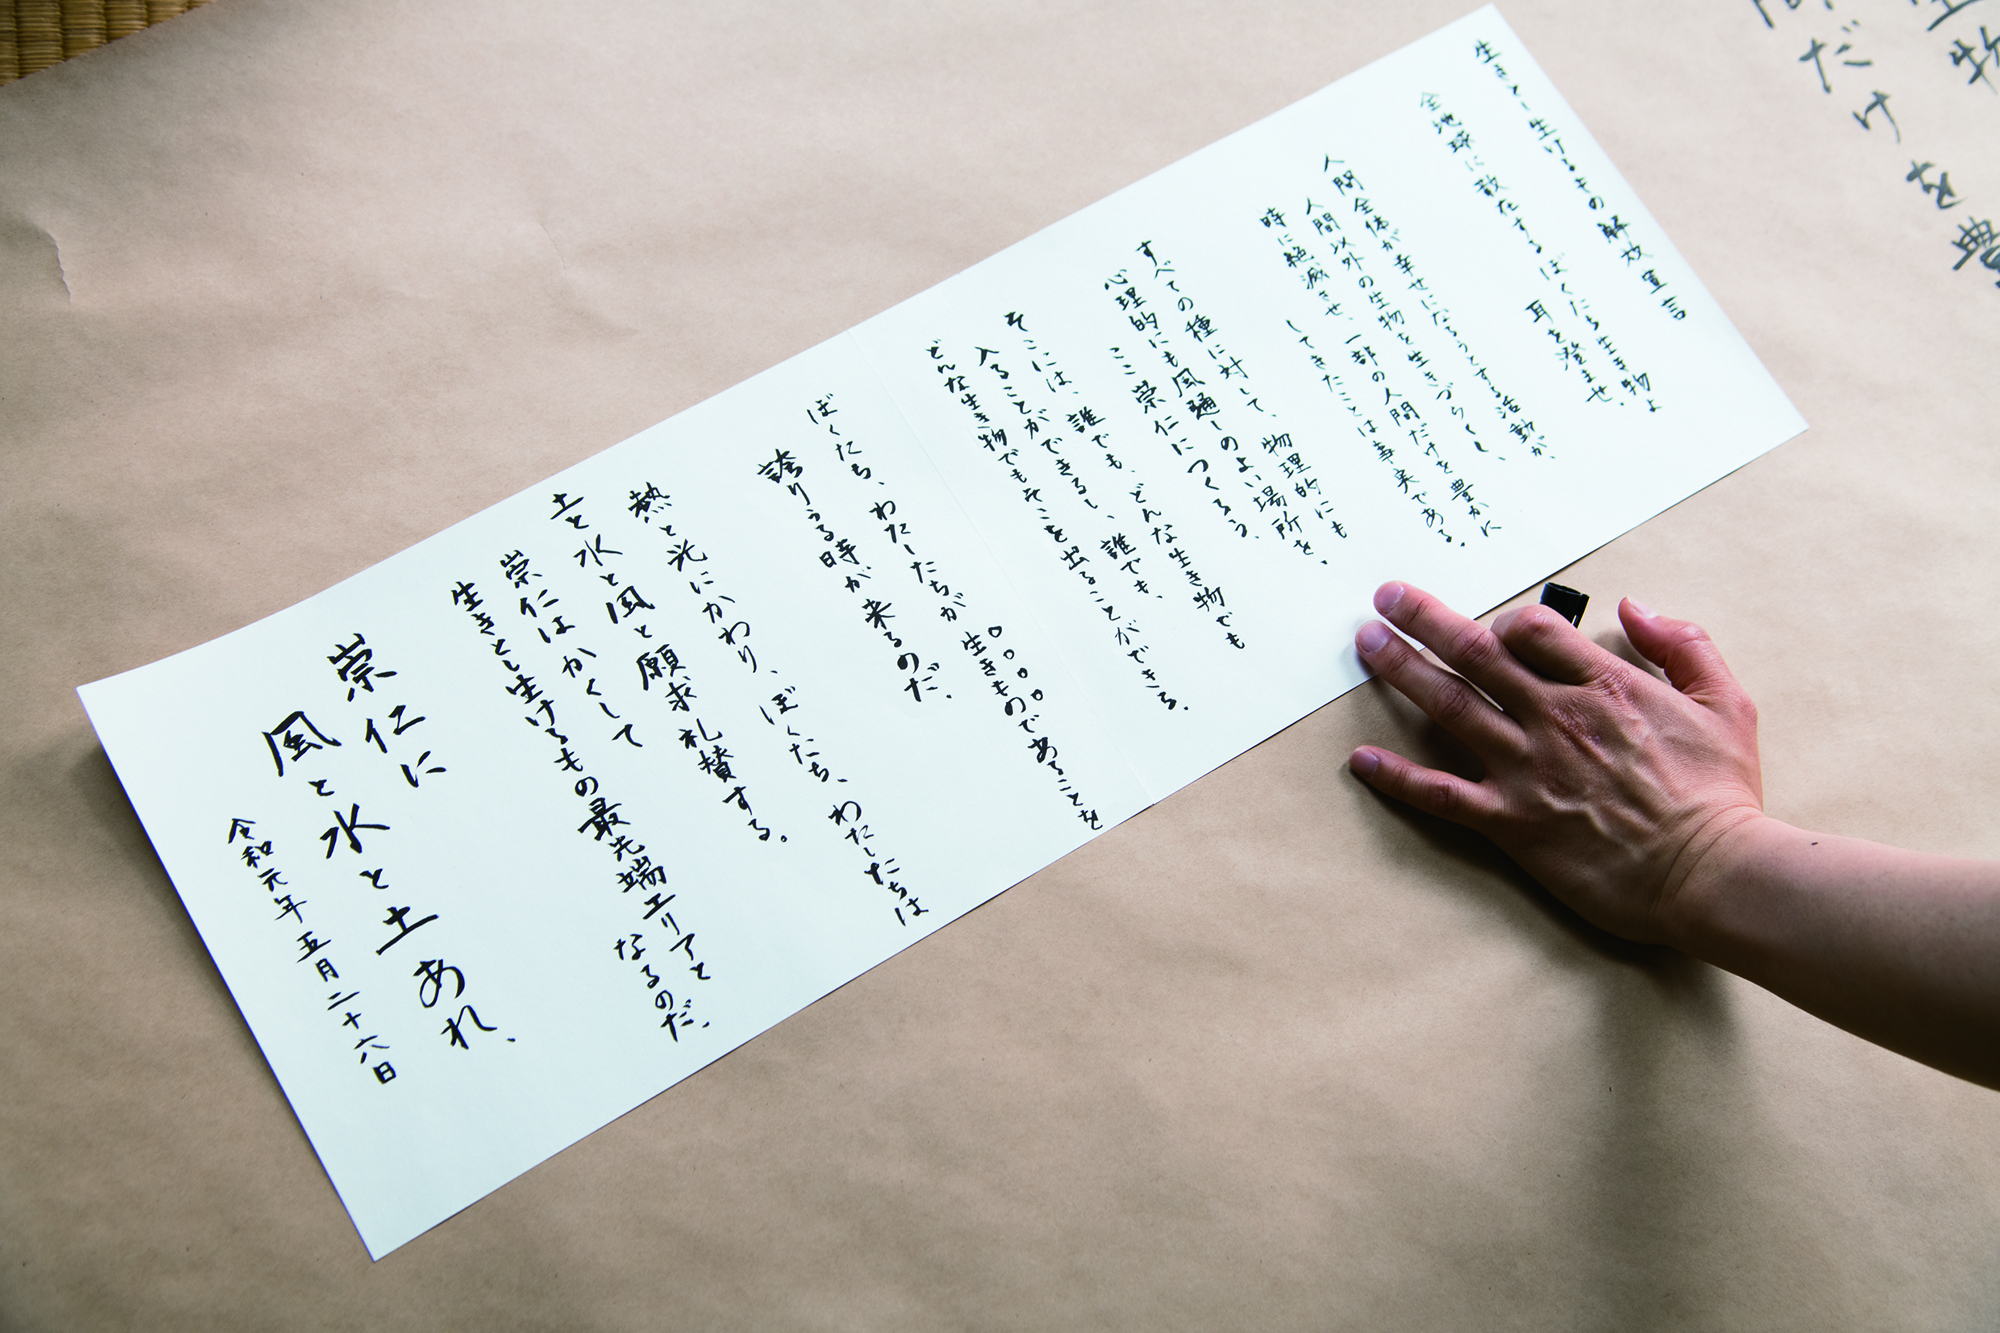 生きとし生けるもの解放宣言
全地球に散在するぼくたち生き物よ
耳を澄ませ、
人間全体が幸せになろうとする活動が、
人間以外の生物を生きづらくし、
時に絶滅させ、一部の人間だけを豊かに
してきたことは事実である。
すべての種に対して、物理的にも
心理的にも風通しのよい場所を、
ここ崇仁につくろう。
そこには、誰でも、どんな生き物でも
入ることができるし、誰でも、
どんな生き物でもそこを出ることができる。
ぼくたち、わたしたちが生きものであることを
誇りうる時が来るのだ。
熱と光にかわり、ぼくたち、わたしたちは
土と水と風と願求礼賛する。
崇仁はかくして
生きとし生けるもの最先端エリアと
なるのだ。
崇仁に
風と水と土あれ、
令和元年五月二十六日
生物
間だけを豊